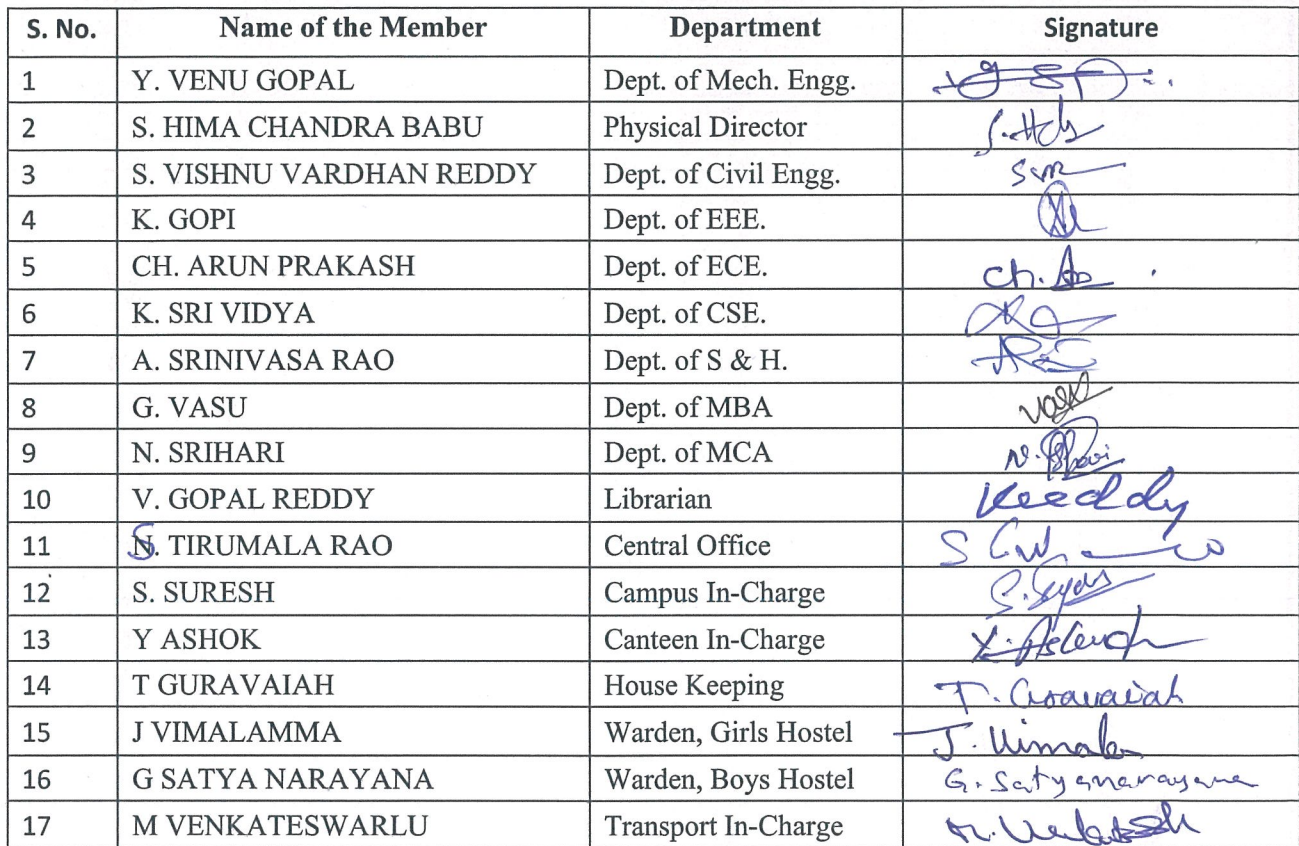 S. No. Name of the Member Department Signature
1 Y. VENU GOPAL Dept. of Mech. Engg.
2 S. HIMA CHANDRA BABU Physical Director
3 S. VISHNU VARDHAN REDDY Dept. of Civil Engg. SVR
4 K. GOPI Dept. of EEE.
5 CH. ARUN PRAKASH Dept. of ECE. Ch.
6 K. SRI VIDYA Dept. of CSE.
7 A. SRINIVASA RAO Dept. of S & H.
8 G. VASU Dept. of MBA
9 N. SRIHARI Dept. of MCA N.
10 V. GOPAL REDDY Librarian
11 S. TIRUMALA RAO Central Office S
12 S. SURESH Campus In-Charge
13 Y ASHOK Canteen In-Charge Y.
14 T GURAVAIAH House Keeping T.
15 J VIMALAMMA Warden, Girls Hostel J. Vimala
16 G SATYA NARAYANA Warden, Boys Hostel G. Satyanarayana
17 M VENKATESWARLU Transport In-Charge